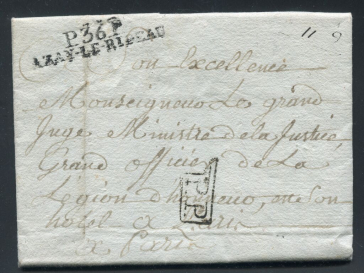 P.36.P
AZAY-LE-RIDEAU
11 9
Son Excellence
Monseigneur Le grand
Juge Ministre de la Justice
Grand Officier de La
Legion d'honneur, en Son
hotel a Paris
a Paris
P.P.